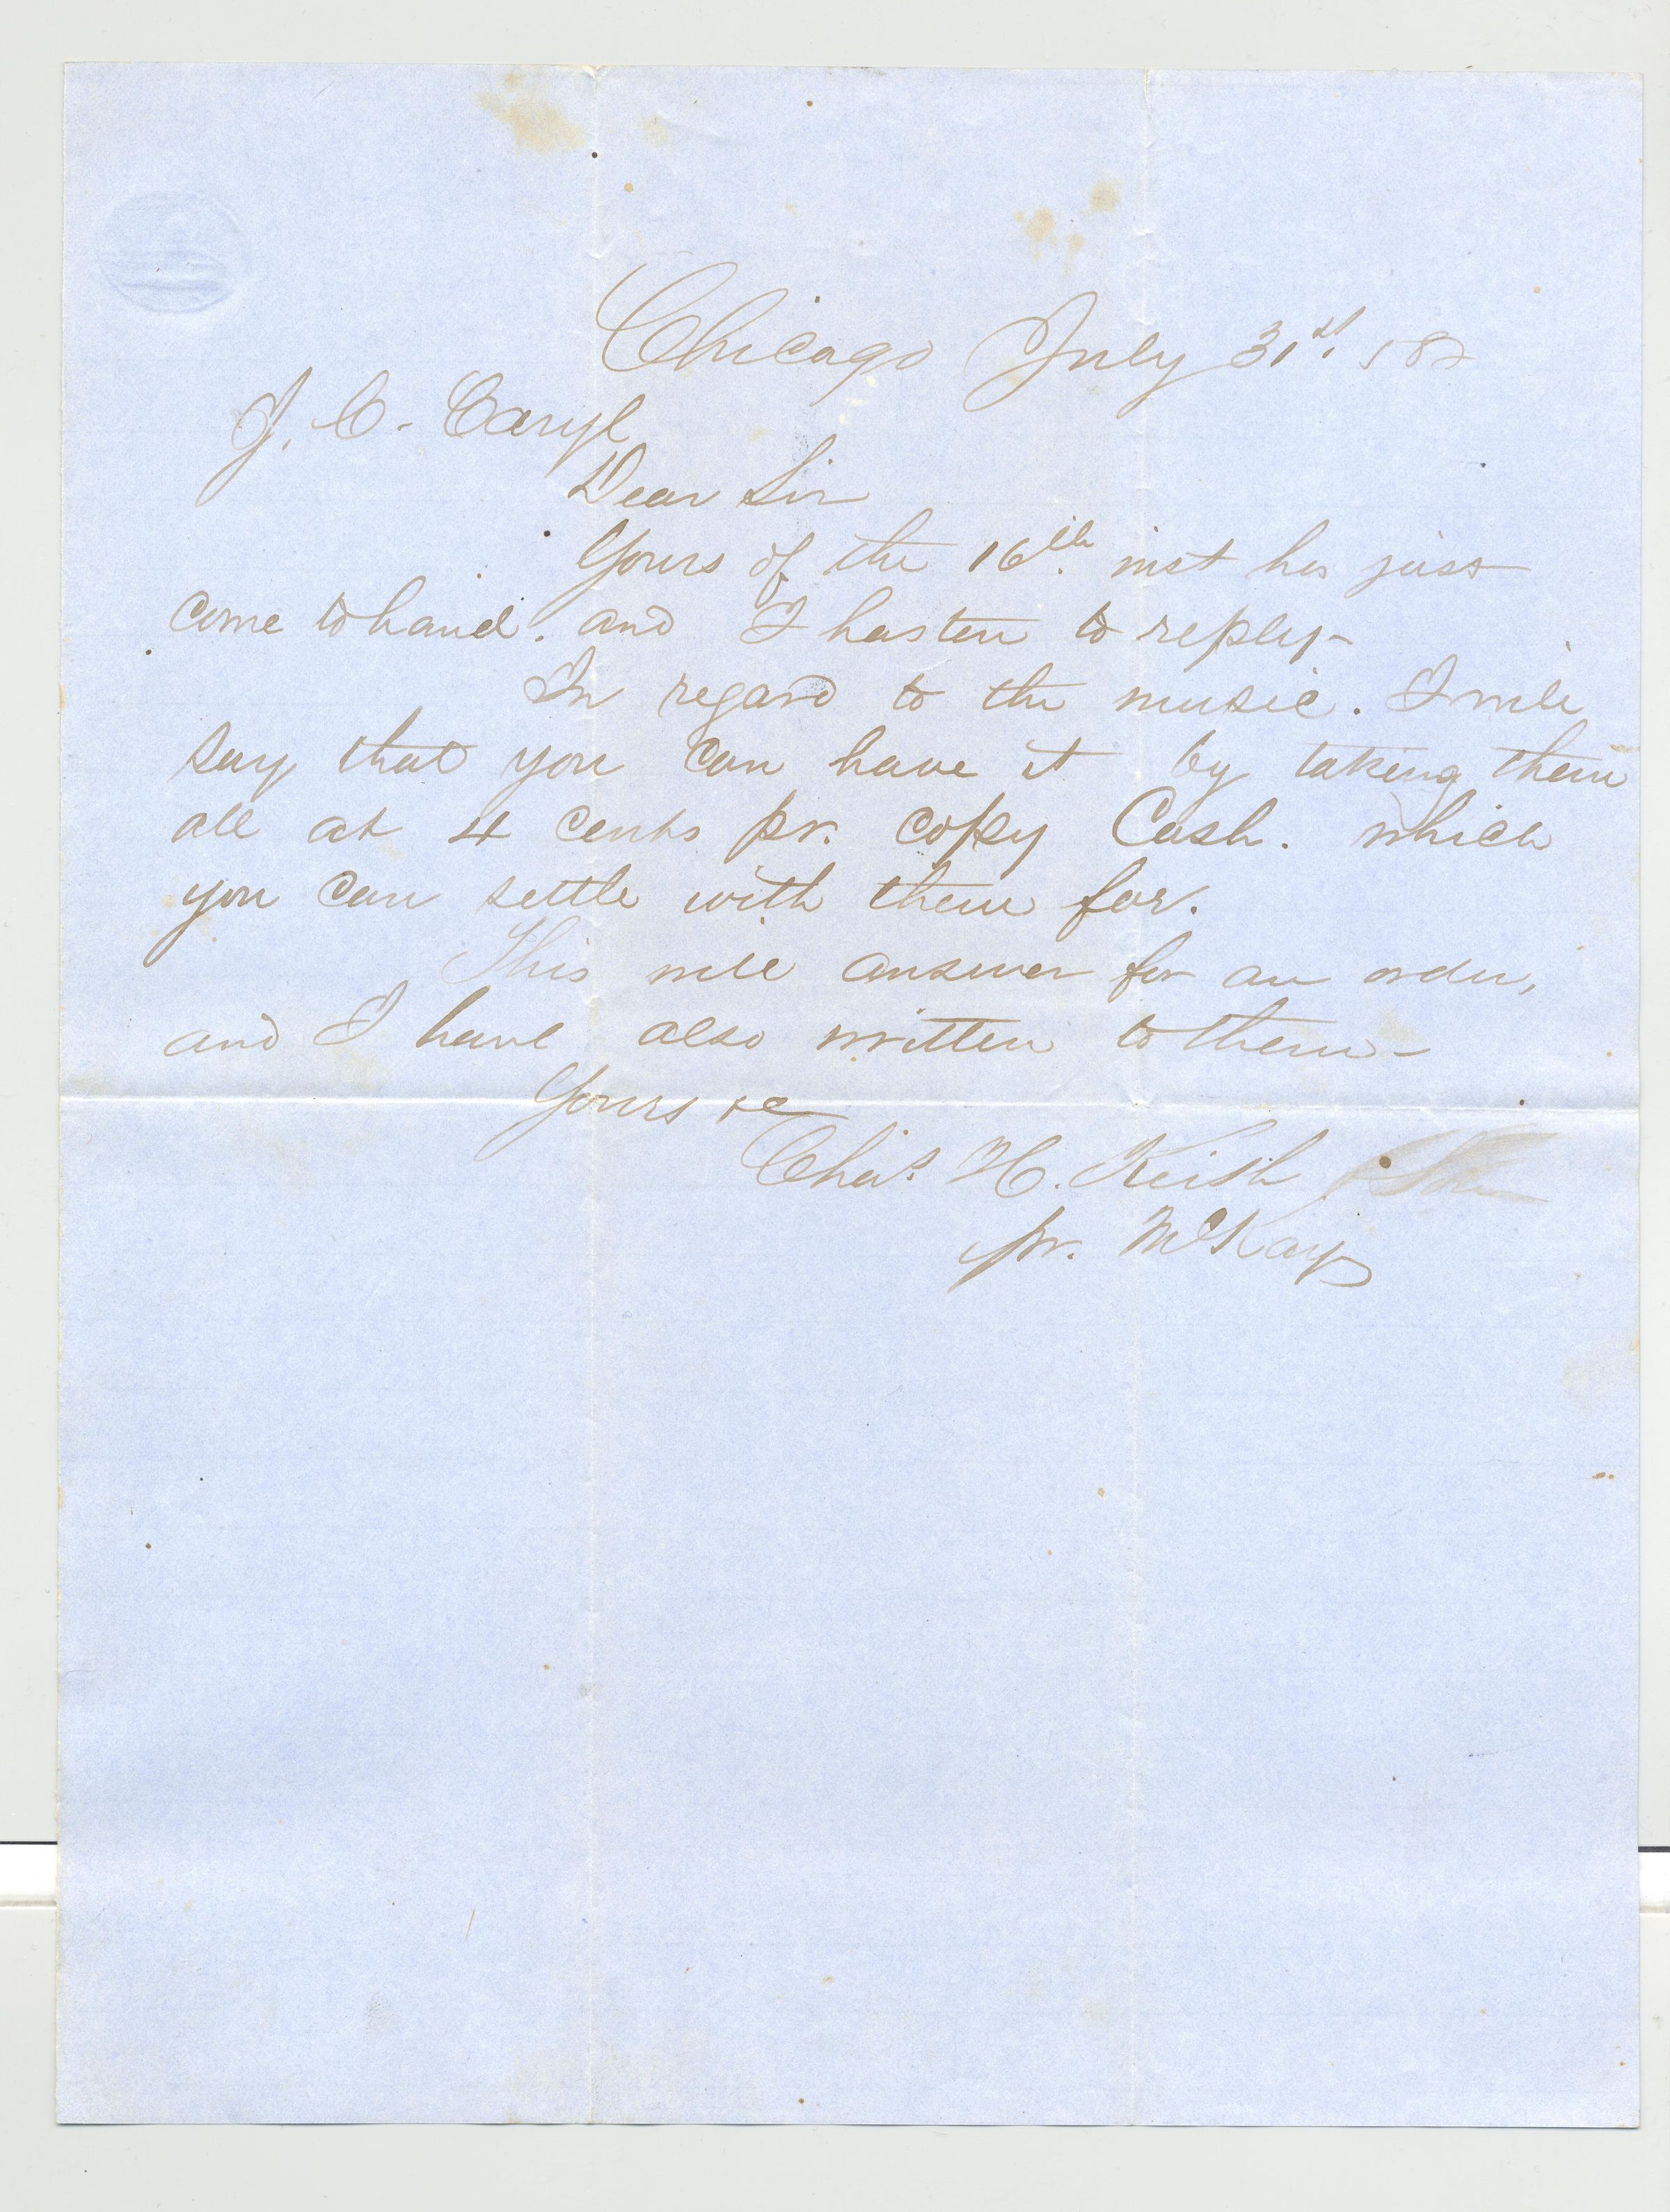 Chicago July 31st. 58
J. C. Caryl
Dear Sir
Yours of the 16th. inst has just
come to hand. and I hasten to reply-
In regard to the music. I will
say that you can have it by taking them
all at 4 cents pr. copy Cash. which
you can settle with them for.
This will answer for an order,
and I have also written to them-
Yours &c
Chas. H. Keith
pr. McKay